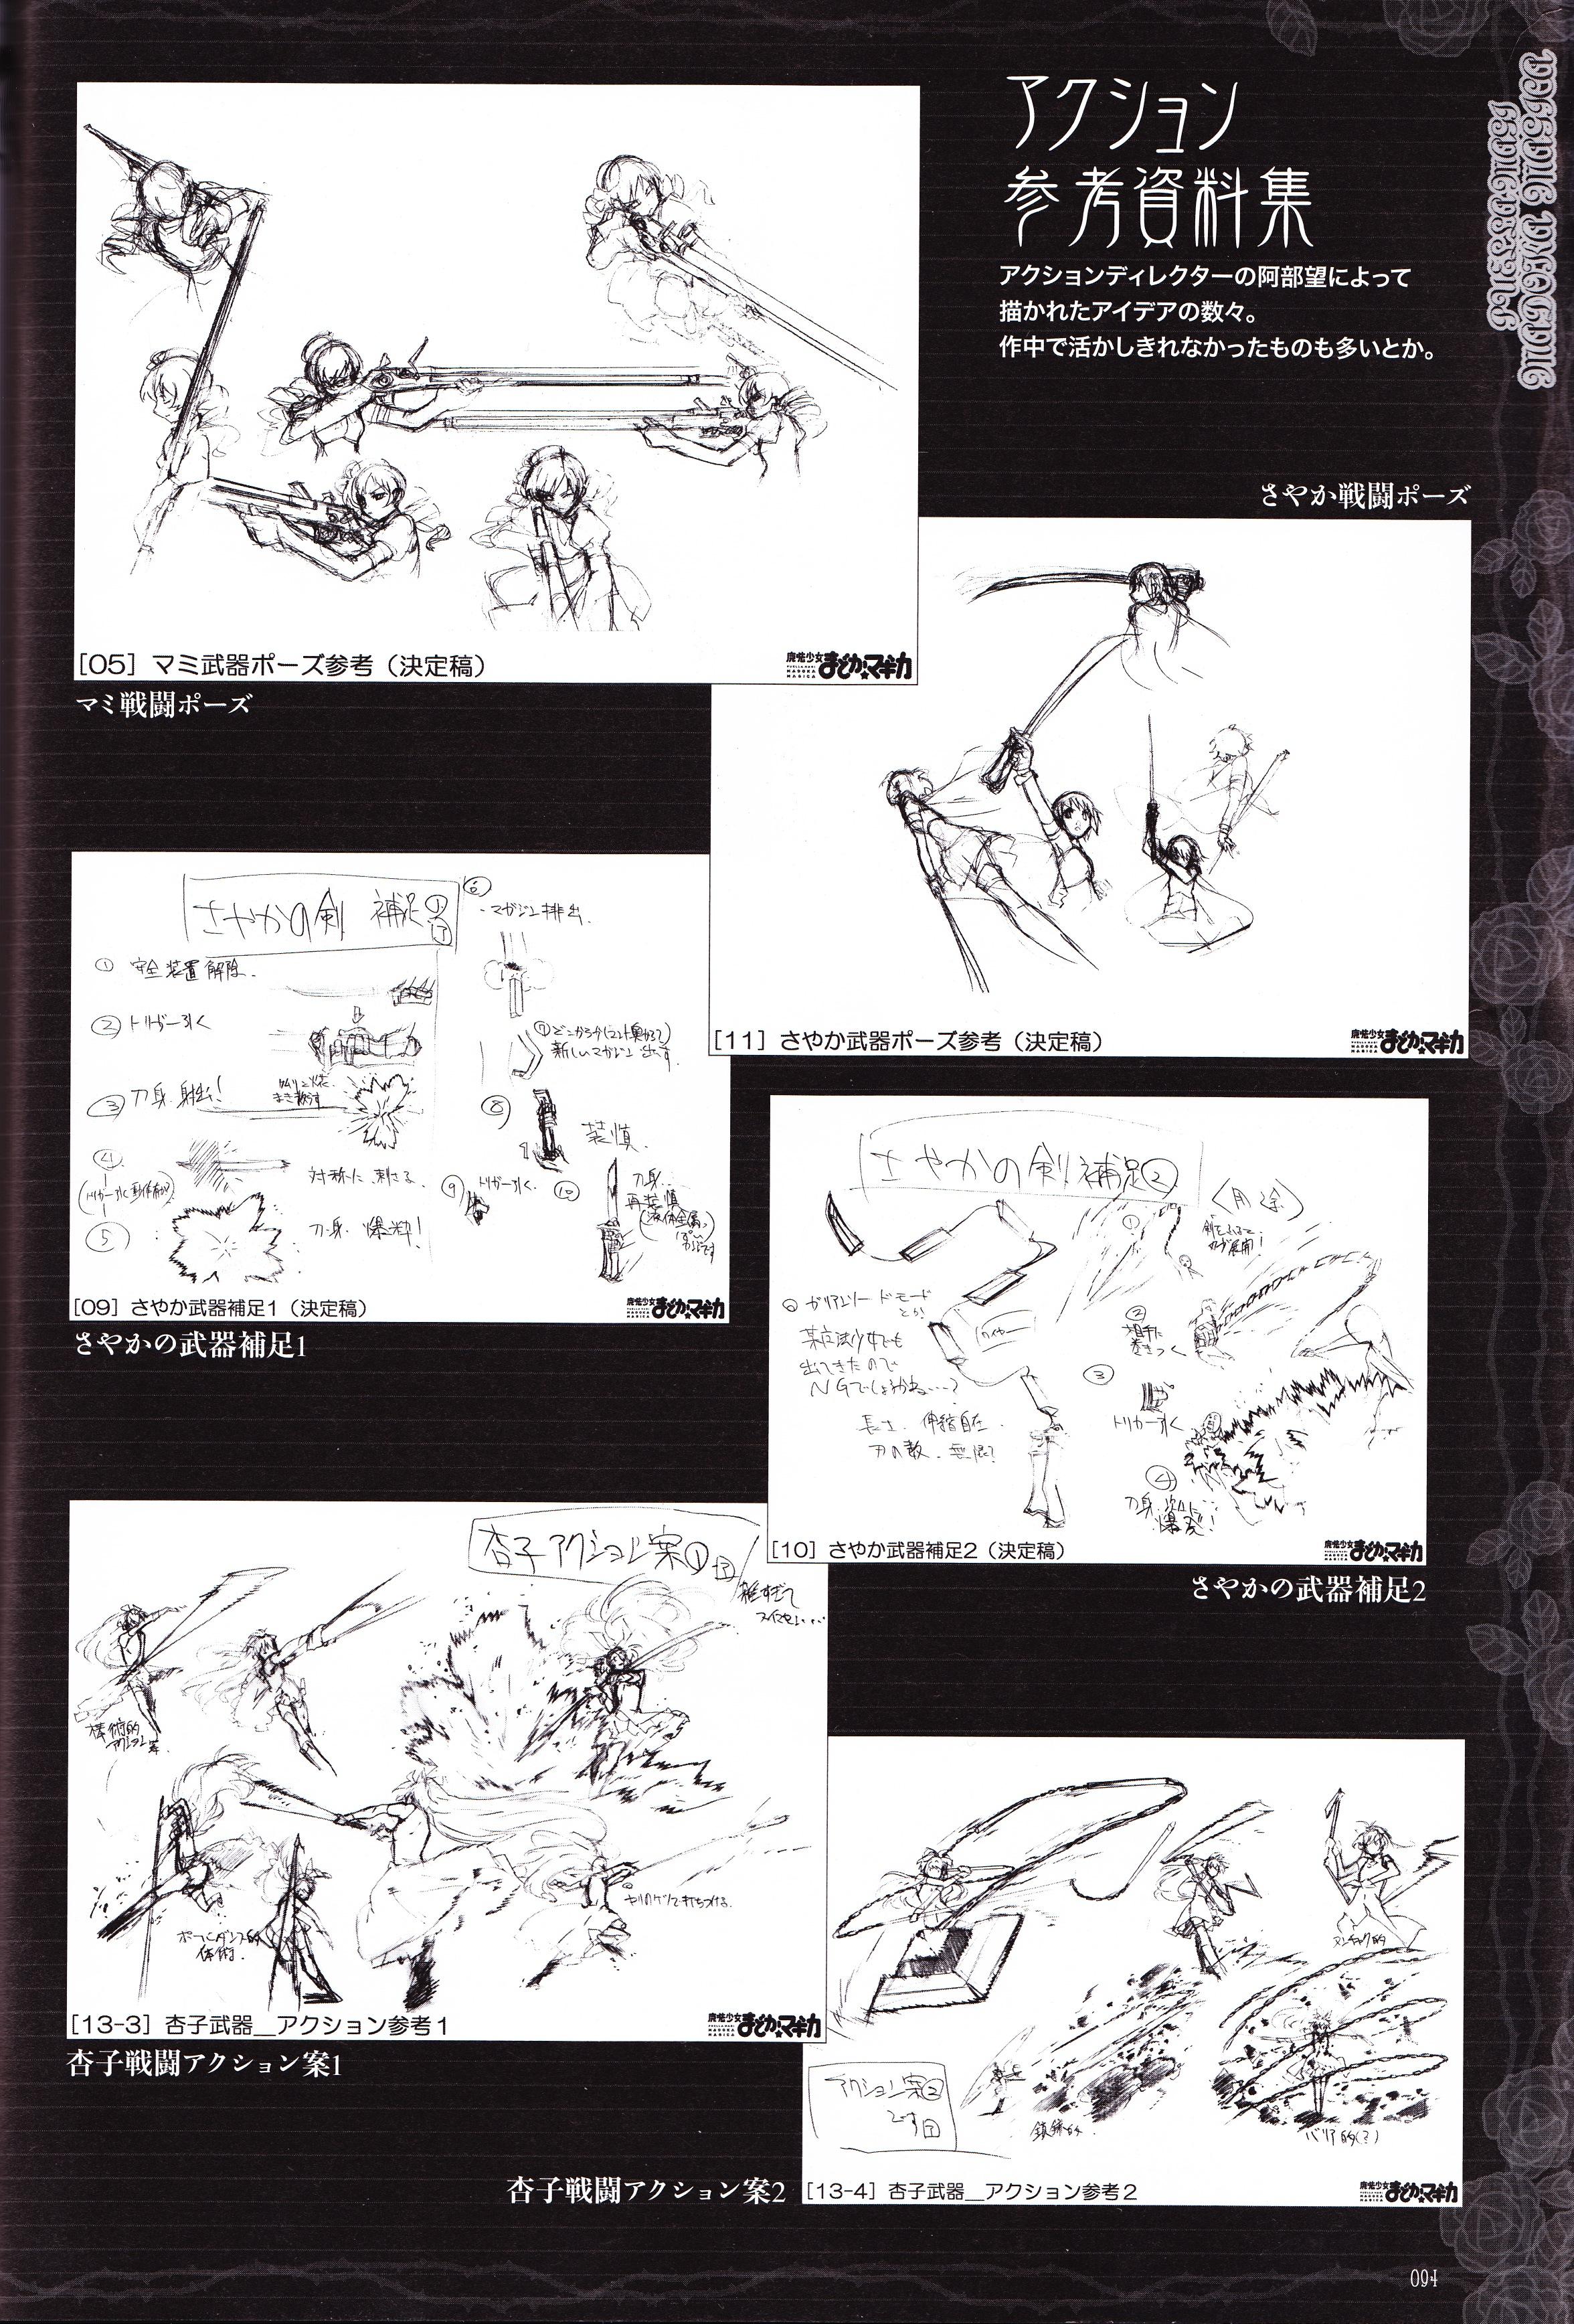 アクション
参考資料集
アクションディレクターの阿部望によって
描かれたアイデアの数々。
作中で活かしきれなかったものも多いとか。
[05] マミ武器ポーズ参考（決定稿）
魔法少女
まどか★マギカ
マミ戦闘ポーズ
さやか戦闘ポーズ
[11] さやか武器ポーズ参考（決定稿）
魔法少女
まどか★マギカ
さやかの剣 補足①
① 安全装置解除.
② トリガー引く
③ 刀身.射出!
④
対称に.刺さる.
⑤
刀身.爆粋!
⑥
・マガジン排出.
⑦どこからか
新しいマガジン出す.
⑧
装填.
⑨ トリガー引く.
⑩
刀身..
再装填
[09] さやか武器補足1（決定稿）
魔法少女
まどか★マギカ
さやかの武器補足1
さやかの剣補足②
〈用途〉
①
ガリアンソードモード
とか
某魔法少女でも
出てきたので
NGでしょうかね…?
長さ.伸縮自在.
刃の数.無限?
ワイヤー
②
相手に
まきつく
③
トリガー引く
④
刀身.次々に
爆発!
[10] さやか武器補足2（決定稿）
魔法少女
まどか★マギカ
さやかの武器補足2
杏子アクション案①
雑すぎて
スイマセン….
棒術的
アクション
ポールダンス的
体術.
[13-3] 杏子武器＿アクション参考1
魔法少女
まどか★マギカ
杏子戦闘アクション案1
ヌンチャク的
鎖鎌的.
バリア的(?)
アクション案②
です
杏子戦闘アクション案2
[13-4] 杏子武器＿アクション参考2
魔法少女
まどか★マギカ
094